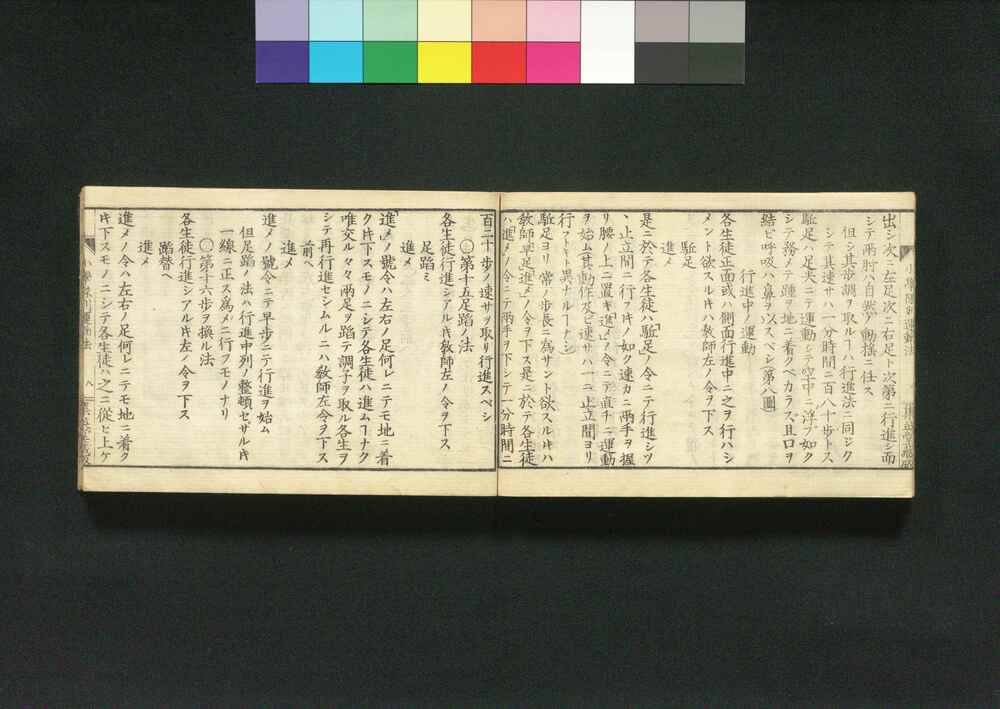 出シ次ニ左足次ニ右足ト次第ニ行進シ而
シテ兩肘ハ自然ノ動搖ニ任ス
但シ其歩調ヲ取ルヿハ行進法ニ同シク
シテ其速サハ一分時間ニ百八十歩トス
駈足ハ足尖ニテ運動シ空中ニ浮フ如ク
シテ務メテ踵ヲ地ニ着クベカラス且口ヲ
結ビ呼吸ハ鼻ヲ以スベシ(第八圖)
行進中ノ運動
各生徒正面或ハ側面行進中ニ之ヲ行ハシ
メント欲スルキハ教師左ノ令ヲ下ス
駈足
進メ
是ニ於テ各生徒ハ「駈足」ノ令ニテ行進シツ
、止立間ニ行フキノ如ク速カニ兩手ヲ握
リ腰ノ上ニ置キ「進メ」ノ令ニテ直チニ運動
ヲ始ム其動作及ビ速サハ一ニ止立間ヨリ
行フトキト異ナルヿナシ
駈足ヨリ常ノ歩長ニ爲サント欲スルキハ
教師「早足進メ」ノ令ヲ下ス是ニ於テ各生徒
ハ「進メ」ノ令ニテ兩手ヲ下シテ一分時間ニ
百二十歩ノ速サヲ取リ行進スベシ
○第十五足蹈ノ法
各生徒行進シアルキ教師左ノ令ヲ下ス
足蹈ミ
進メ
「進メ」ノ號令ハ左右ノ足何レニテモ地ニ着
ク𪜈下スモノニシテ各生徒ハ進ムヿナク
唯交ル々々兩足ヲ蹈テ調子ヲ取ル各生ヲ
シテ再行進セシムルニハ教師左令ヲ下ス
前ヘ
進メ
進メノ號令ニテ早歩ニテ行進ヲ始ム
但足蹈ノ法ハ行進中列ノ整頓セザルキ
一線ニ正ス爲メニ行フモノナリ
○第十六歩ヲ換ル法
各生徒行進シアルキ左ノ令ヲ下ス
蹈替ヘ
進メ
進メノ令ハ左右ノ足何レニテモ地ニ着ク
キ下スモノニシテ各生徒ハ之ニ從ヒ上ケ